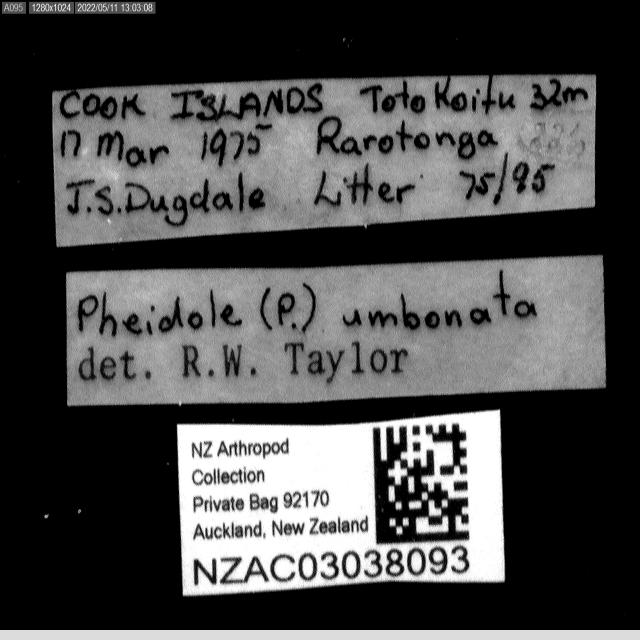 A095 1280x1024 2022/05/11 13:03:08
COOK ISLANDS Toto Koitu 32m
17 Mar 1975 Rarotonga
J.S.Dugdale Litter 75/95
Pheidole (P.) umbonata
det. R.W. Taylor
NZ Arthropod
Collection
Private Bag 92170
Auckland, New Zealand
NZAC03038093